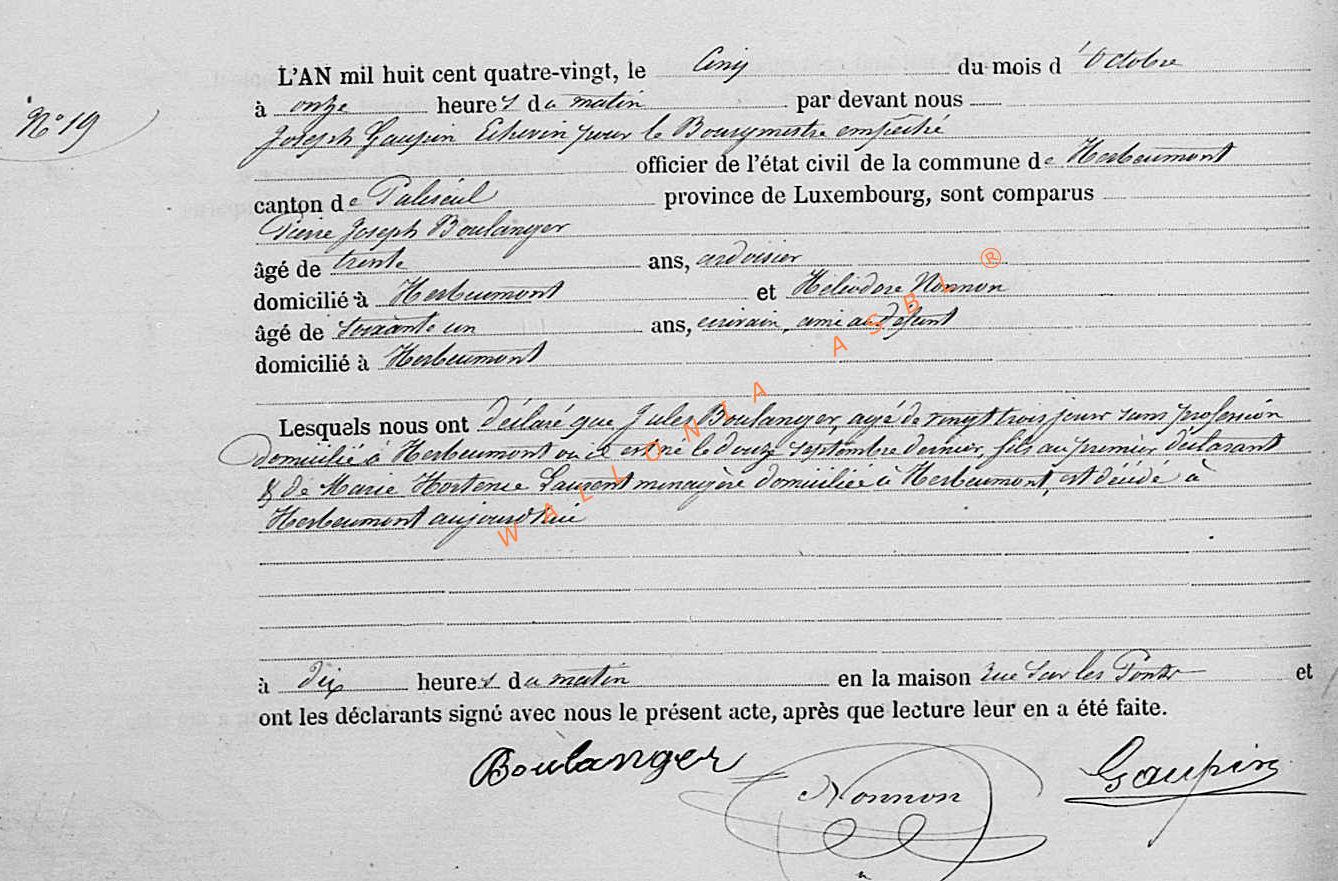 N° 19
L'AN mil huit cent quatre-vingt, le Cinq du mois d'Octobre
à onze heures du matin par devant nous
Joseph Gaupin Echevin pour le Bourgmestre empêché
officier de l'état civil de la commune de Herbeumont
canton de Paliseul province de Luxembourg, sont comparus
Pierre Joseph Boulanger
âgé de trente ans, ardoisier
domicilié à Herbeumont et Héliodore Nonnon
âgé de soixante un ans, écrivain, ami au défunt
domicilié à Herbeumont
Lesquels nous ont déclaré que Jules Boulanger, agé de vingt trois jours sans profession
domicilié à Herbeumont où il est né le douze septembre dernier, fils au premier déclarant
& de Marie Hortense Laurent ménagère domiciliée à Herbeumont, est décédé à
Herbeumont aujourd'hui
à dix heures du matin en la maison rue Sur les Ponts et
ont les déclarants signé avec nous le présent acte, après que lecture leur en a été faite.
Boulanger Nonnon Gaupin
WALLONIA ASBL ®